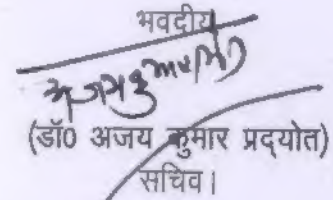 भवदीय
(डॉ0 अजय कुमार प्रद्योत)
सचिव।